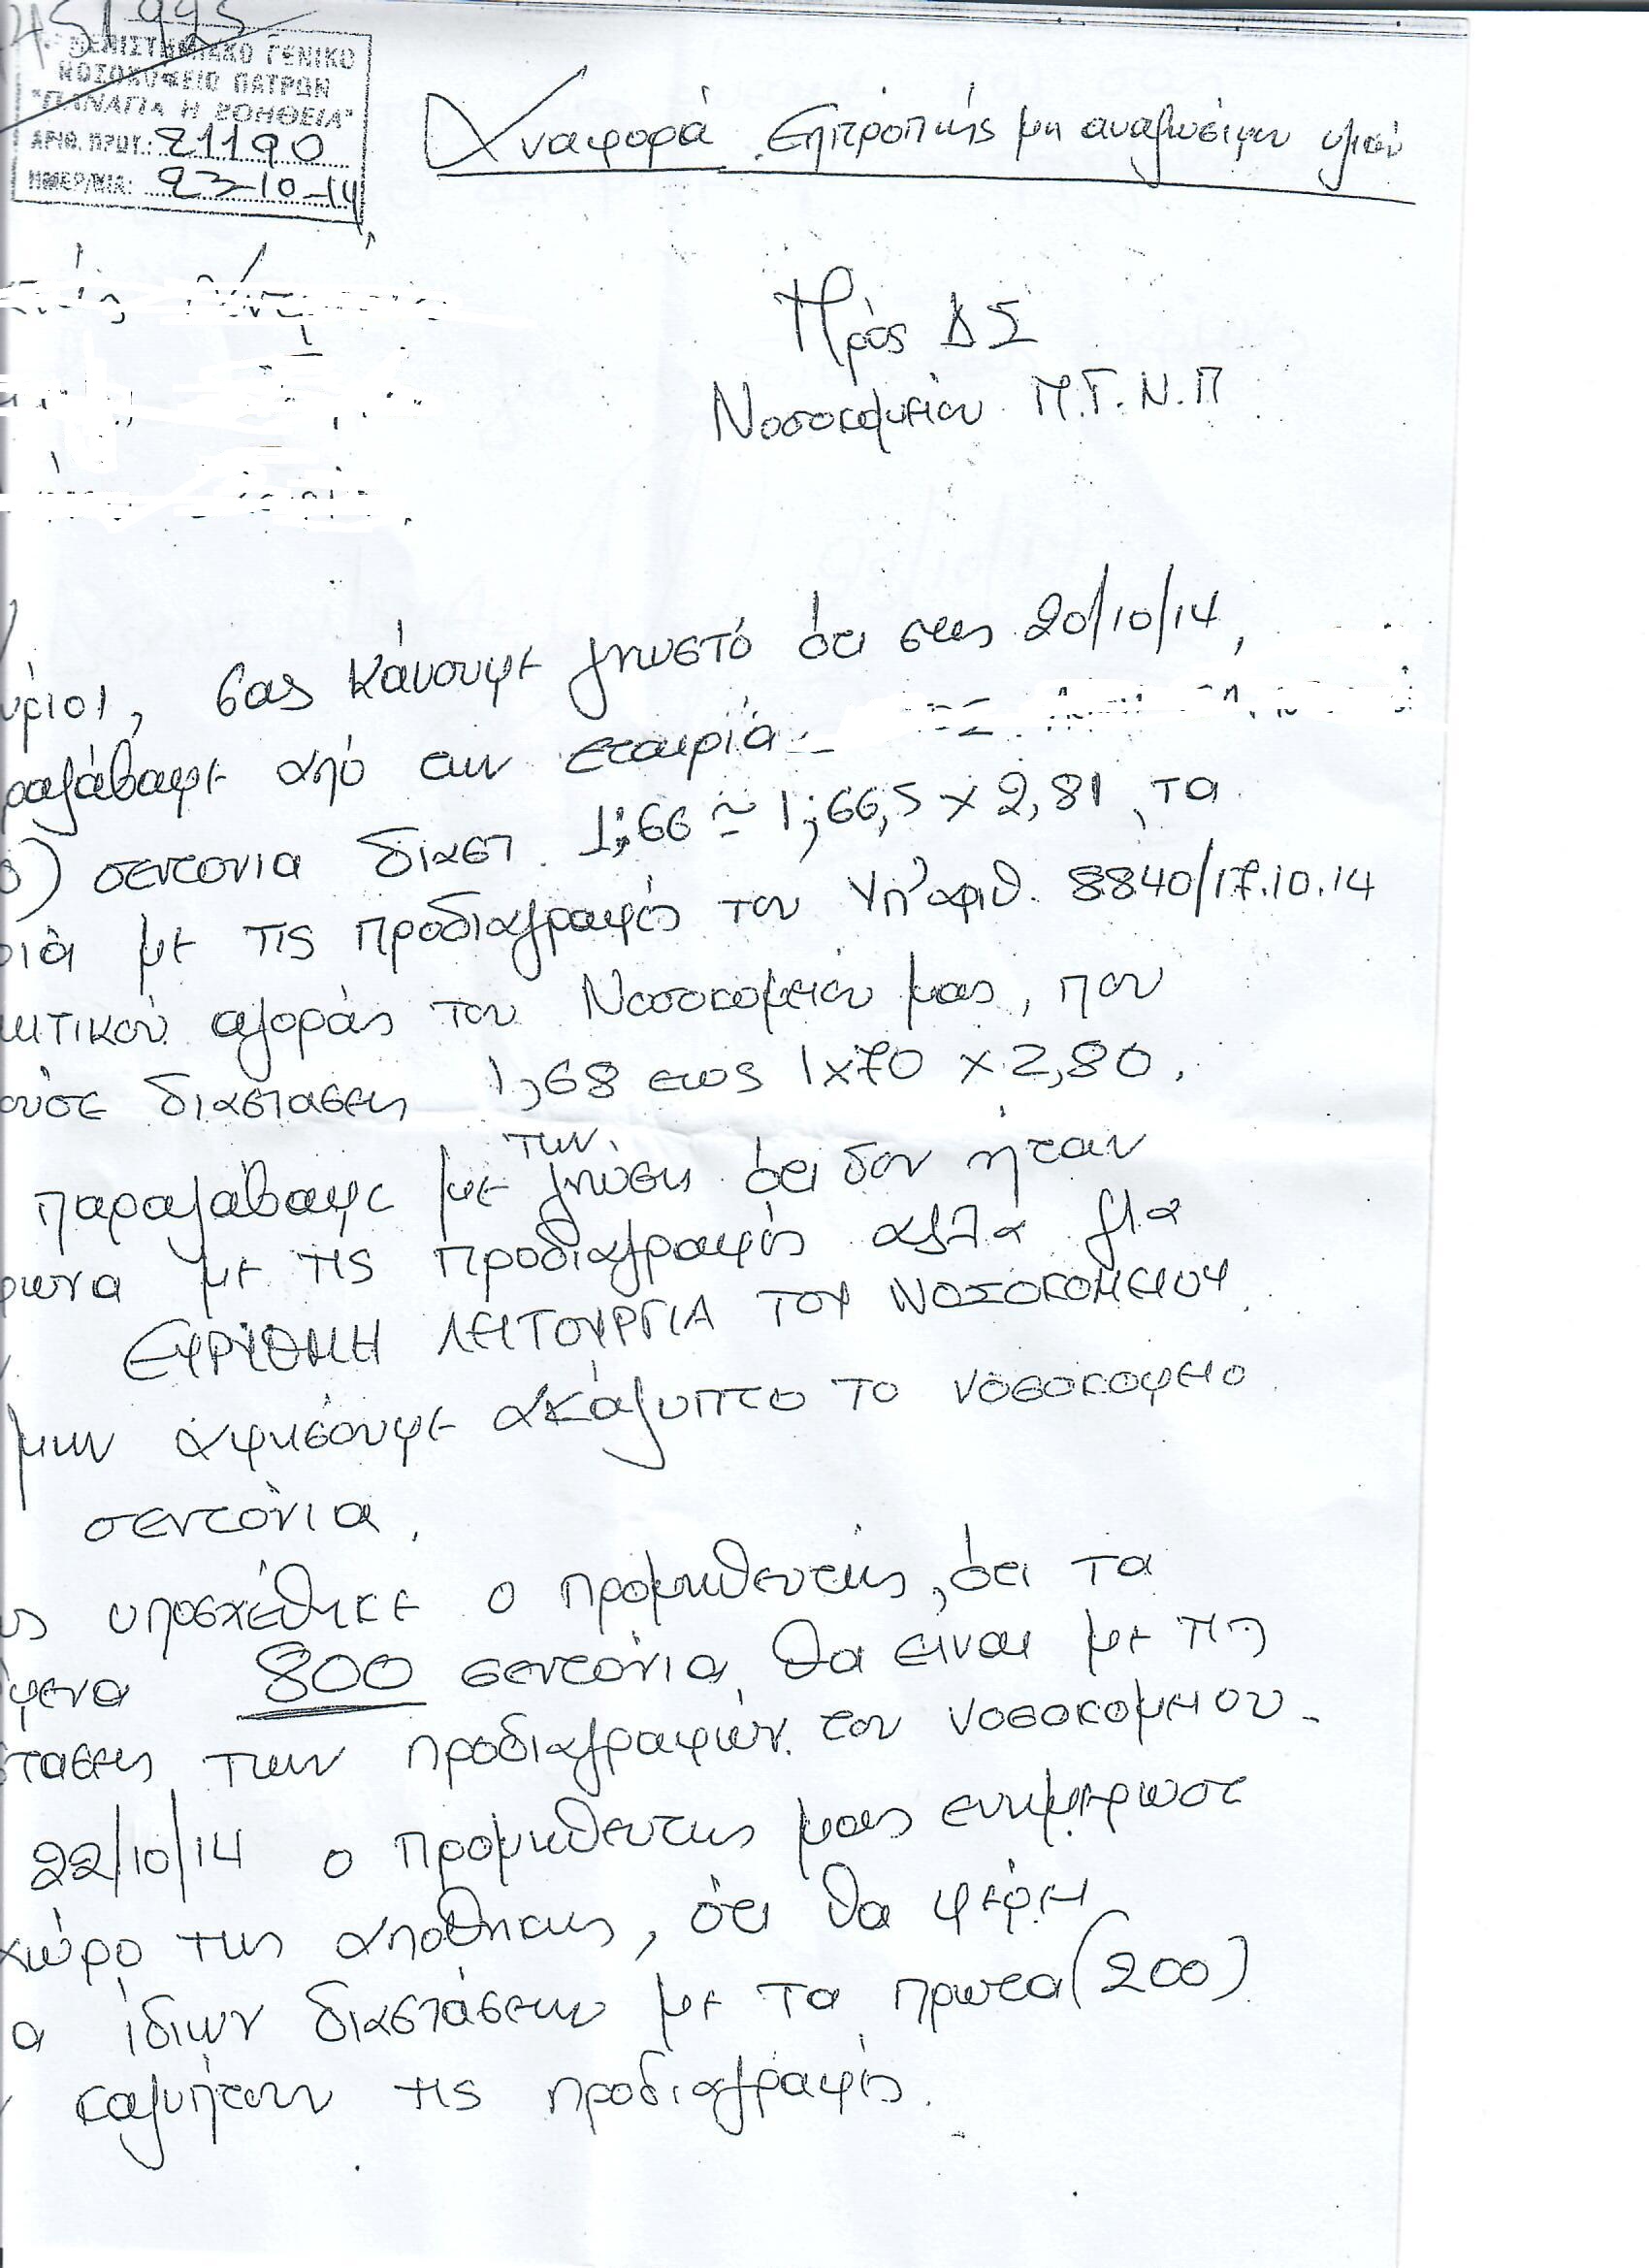 ΠΑΝΕΠΙΣΤΗΜΙΑΚΟ ΓΕΝΙΚΟ
ΝΟΣΟΚΟΜΕΙΟ ΠΑΤΡΩΝ
"ΠΑΝΑΓΙΑ Η ΒΟΗΘΕΙΑ"
ΑΡΙΘ. ΠΡΩΤ.: 21190
ΗΜΕΡ/ΝΙΑ: 23-10-14
Αναφορά Επιτροπής μη αναλωσίμου υλικού
Πρός ΔΣ
Νοσοκομείου Π.Γ.Ν.Π
ύριοι, σας κάνουμε γνωστό ότι στις 20/10/14,
ραλάβαμε από την εταιρία
0) σεντονια διαστ. 1,66 ~ 1,66,5 x 2,81, τα
οιά με τις προδιαγραφές του υπ'αριθ. 8840/17.10.14
ητικού αγοράς του Νοσοκομείου μας, που
ούσε διαστασεις 1,68 εως 1x70 x 2,80.
παραλάβαμε με των γνώση ότι δεν ήταν
φωνα με τις προδιαγραφές αλλά για
ΕΥΡΥΘΜΗ ΛΕΙΤΟΥΡΓΙΑ ΤΟΥ ΝΟΣΟΚΟΜΕΙΟΥ.
μην αφησουμε ακάλυπτο το νοσοκομειο
σεντόνια.
υποσχέθηκε ο προμηθευτής, ότι τα
όμενα 800 σεντόνια, θα ειναι με τις
στασεις των προδιαγραφών του νοσοκομειου.
22/10/14 ο προμηθευτης μας ενημερωσε
χώρο της αποθηκης, ότι θα φέρει
α ίδιων διαστάσεων με τα πρωτα (200)
καλυπτουν τις προδιαγραφές.